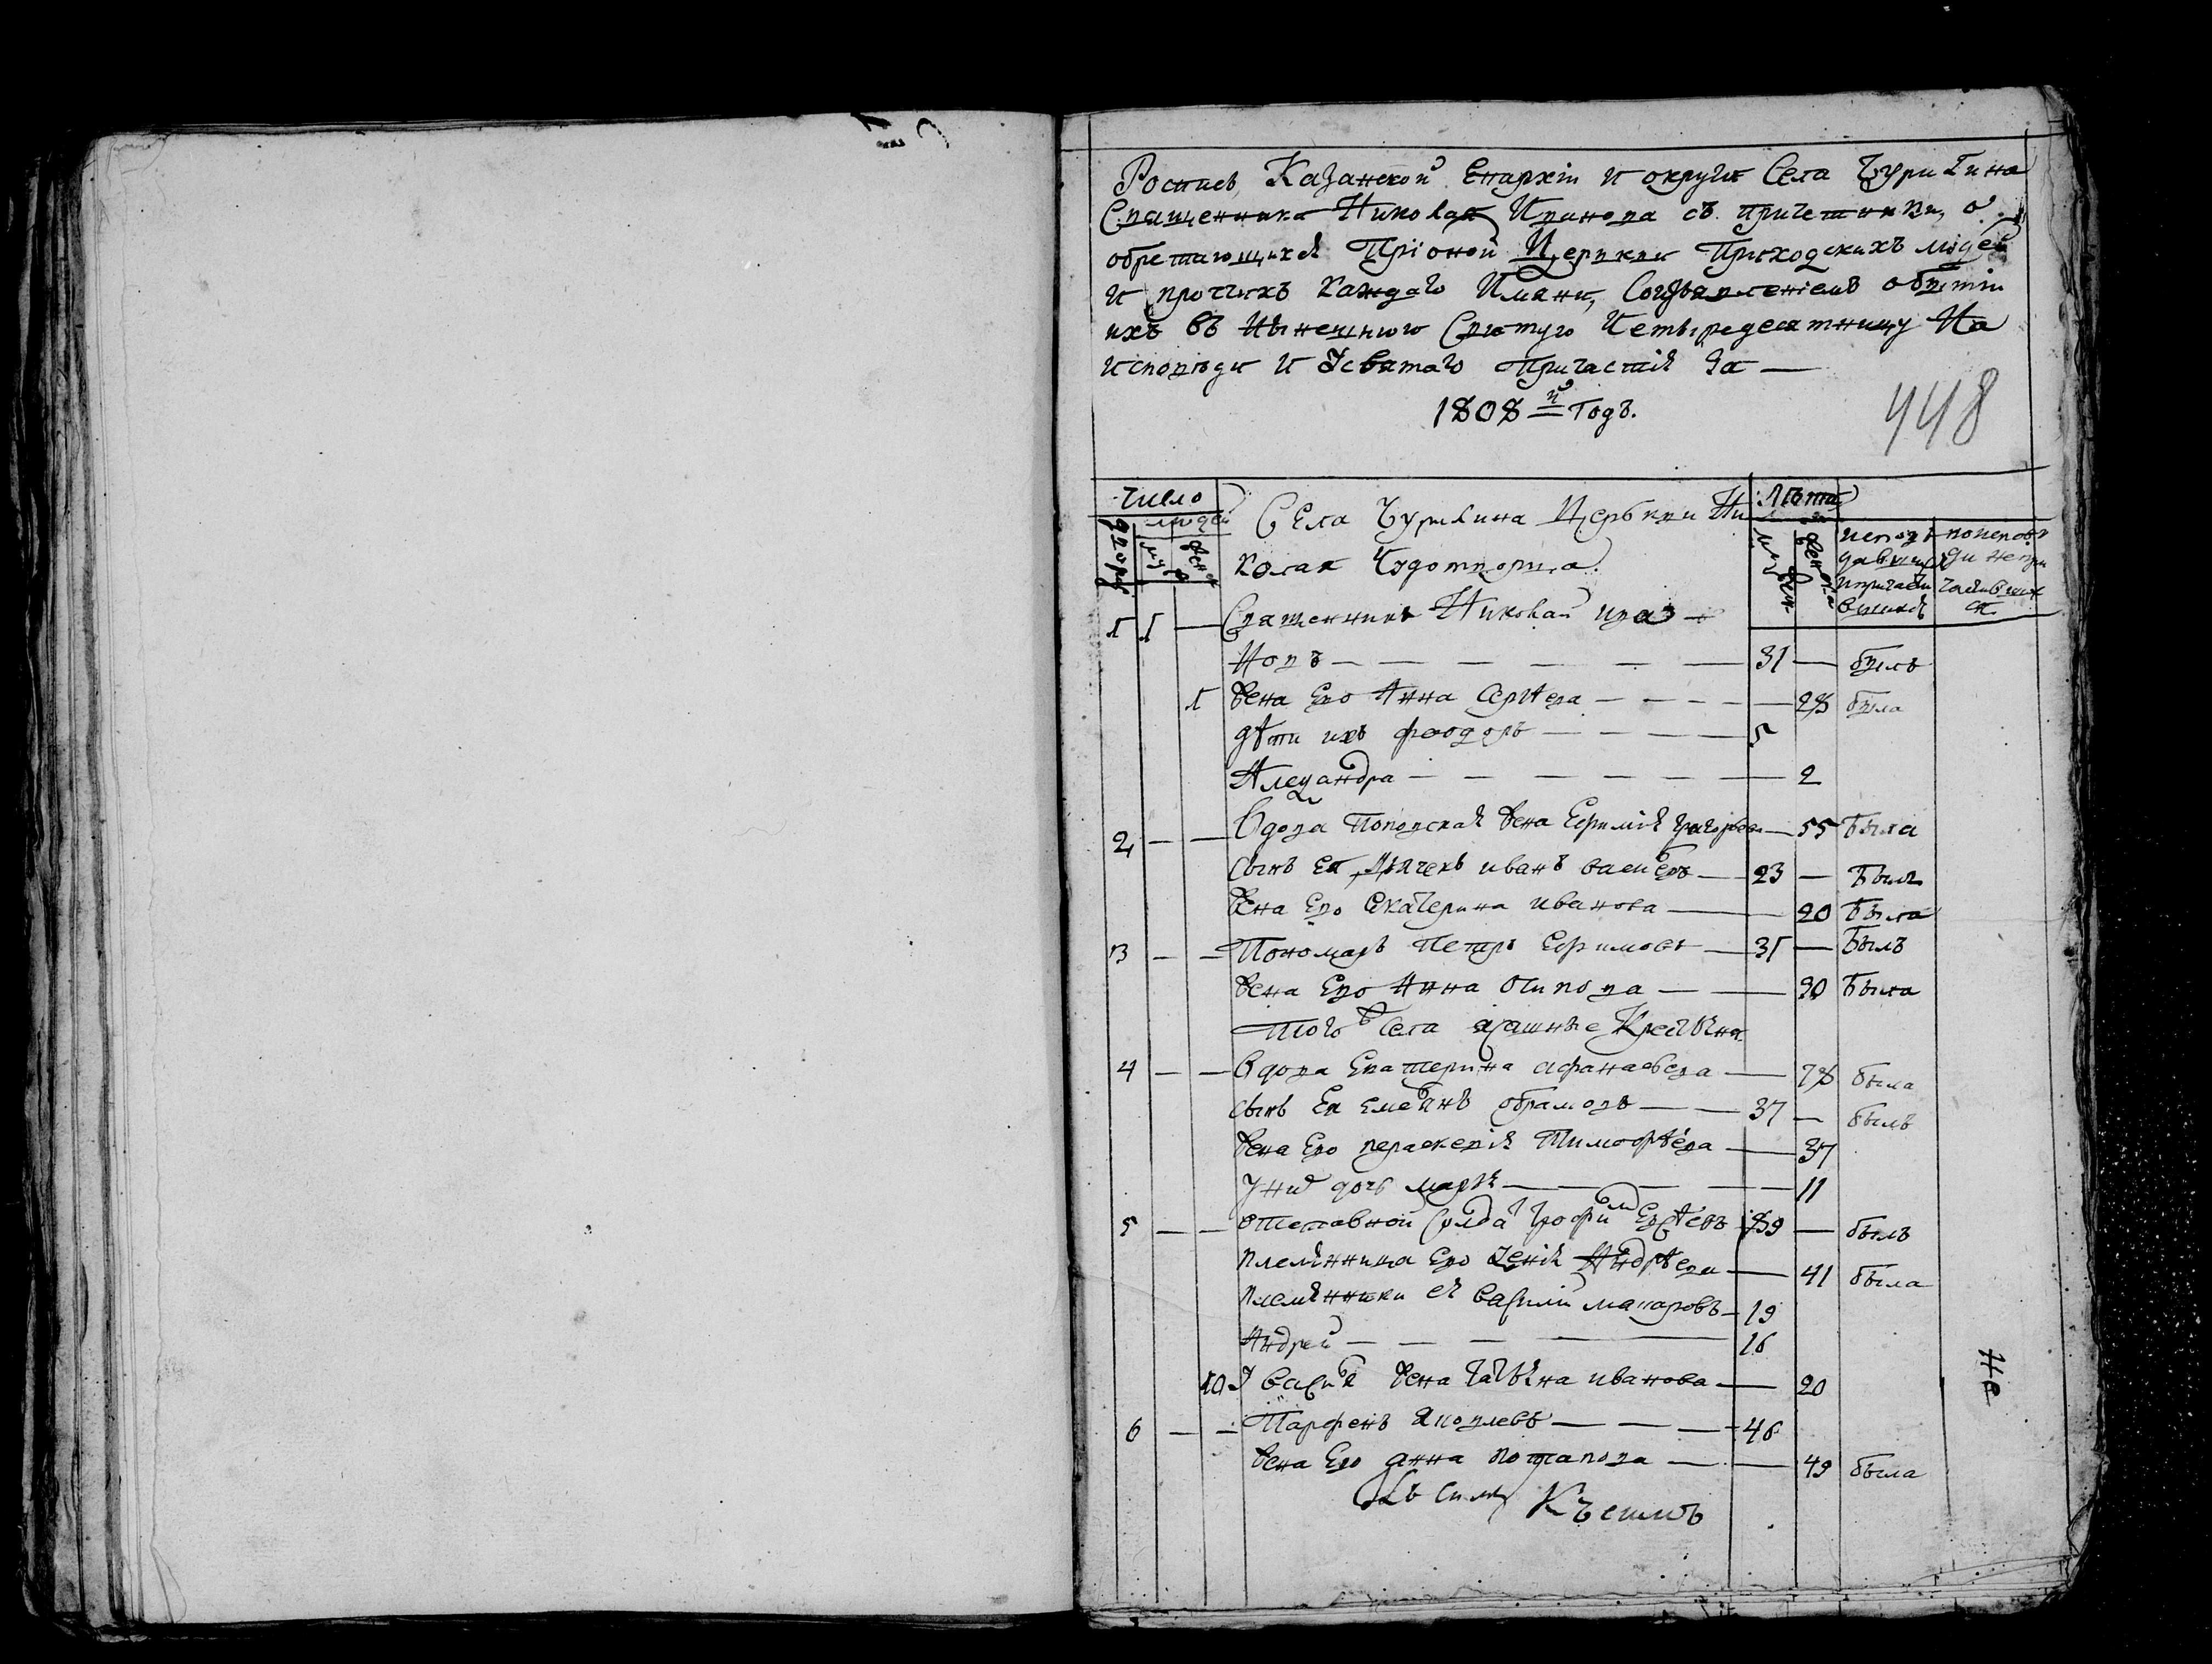 Роспись Казанской Епархіи и округи Села Чурилина
Священника Николая Иванова съ причетники, о
обретающихся Пріоной Церкви Приходскихъ людей
И протчихъ каждаго Имяни, Соизъявленіемъ обытіи
ихъ въ Нынешнюю Святую Четыредесятницу На
исповѣди и Усвятаго Причастія За —
1808 й Годъ.
448
Число
людей
дворовъ
муж
женск
Села Чурилина Церькви Ни
колая Чудотворца.
Лѣта
мужск
женска
испов
давшихся
ипричасти
вшихся
поисповѣ
ди непри
частивших
ся
1 1 — Священникъ Николай ива
новъ — 31 — былъ
1 Жена Ево Анна Сергѣева — 28 была
дѣти ихъ феодоръ — 5
Александра — 2
2 — — Вдова Поповская жена Ефимія григорьева — 55 Была
Сынъ ея Дьячекъ иванъ васильевъ — 23 — Былъ
Жена Ево Екатерина иванова — 20 Была
3 — — Пономарь Петръ Ефимовъ — 31 — Былъ
Жена Ево Анна Осипова — 30 Была
Тогожъ Села ясашные Крестьяна
4 — — Вдова Екатерина афанасьева — 78 была
Сынъ Ея Емельянъ абрамовъ — 37 — былъ
Жена Ево параскевія Тимофѣева — 37
У нихъ дочь марья — 11
5 — — отставной Солдатъ трофимъ — 89 — былъ
племянница Ево Ксенія Андрѣева — 41 была
племянники ея василій макаровъ — 19
Андрей — 16
10 У василья жена татьяна иванова — 20
6 — — Парфенъ яковлевъ — 46
Жена Ево анна потапова — 49 была
Къ симъ
Не